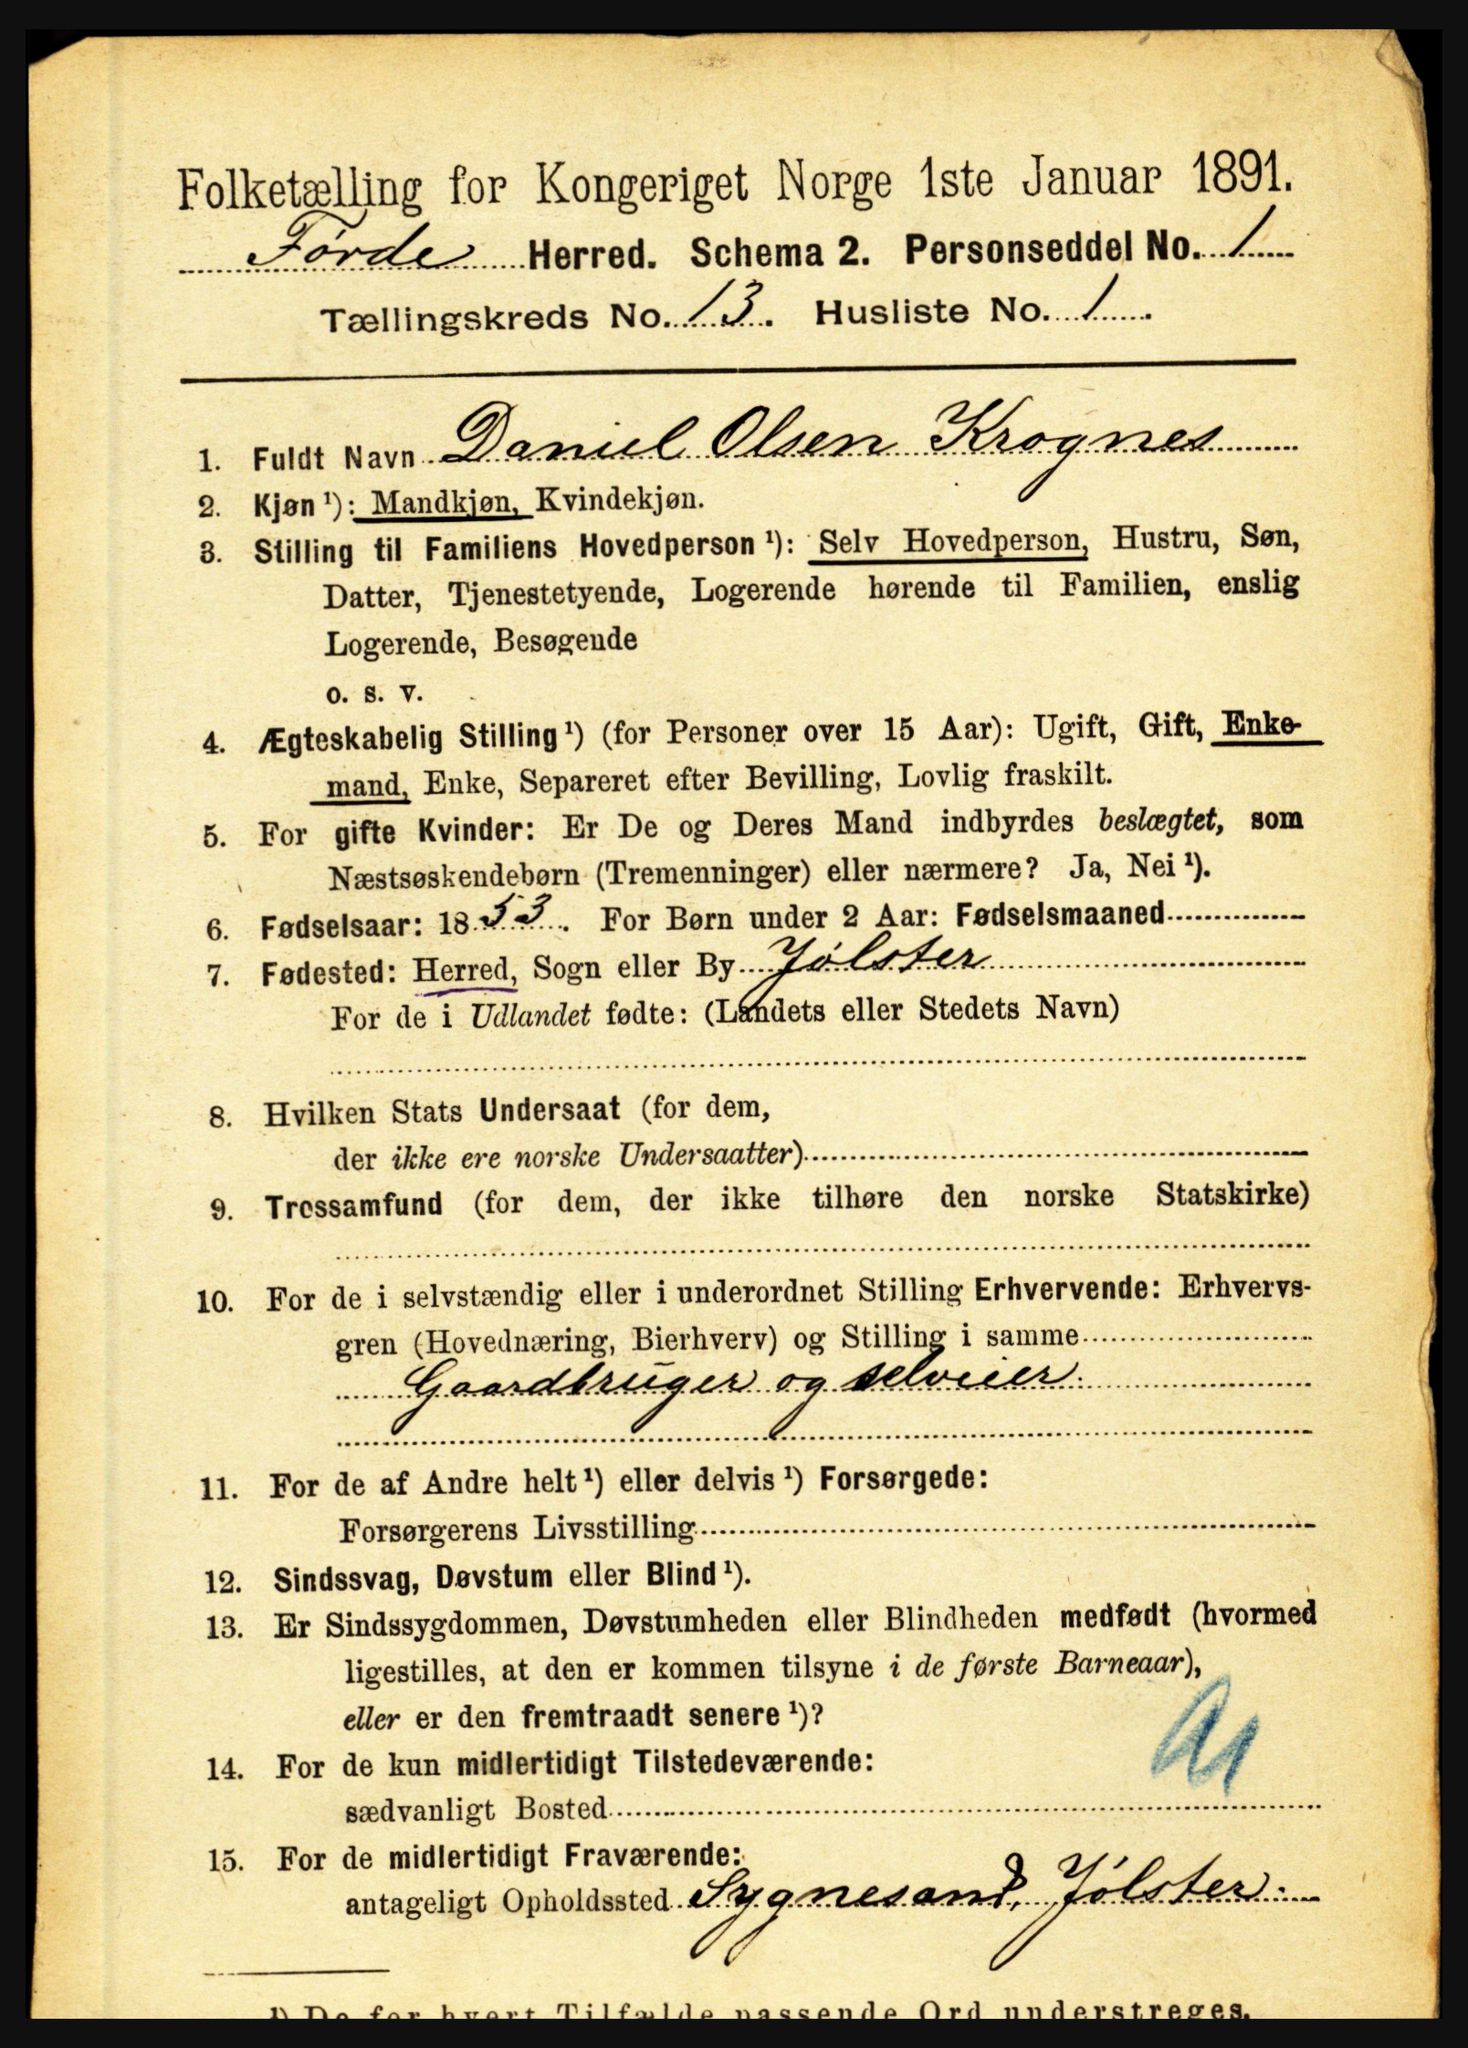 Folketælling for Kongeriget Norge 1ste Januar 1891.
Førde Herred. Schema 2. Personseddel No. 1
Tællingskreds No. 13. Husliste No. 1.
1. Fuldt Navn Daniel Olsen Krognes
2. Kjøn ¹): Mandkjøn, Kvindekjøn.
3. Stilling til Familiens Hovedperson ¹): Selv Hovedperson, Hustru, Søn,
Datter, Tjenestetyende, Logerende hørende til Familien, enslig
Logerende, Besøgende
o. s. v.
4. Ægteskabelig Stilling ¹) (for Personer over 15 Aar): Ugift, Gift, Enke-
mand, Enke, Separeret efter Bevilling, Lovlig fraskilt.
5. For gifte Kvinder: Er De og Deres Mand indbyrdes beslægtet, som
Næstsøskendebørn (Tremenninger) eller nærmere? Ja, Nei ¹).
6. Fødselsaar: 1853. For Børn under 2 Aar: Fødselsmaaned
7. Fødested: Herred, Sogn eller By Jølster
For de i Udlandet fødte: (Landets eller Stedets Navn)
8. Hvilken Stats Undersaat (for dem,
der ikke ere norske Undersaatter)
9. Trossamfund (for dem, der ikke tilhøre den norske Statskirke)
10. For de i selvstændig eller i underordnet Stilling Erhvervende: Erhvervs-
gren (Hovednæring, Bierhverv) og Stilling i samme
Gaardbruger og selveier.
11. For de af Andre helt ¹) eller delvis ¹) Forsørgede:
Forsørgerens Livsstilling
12. Sindssvag, Døvstum eller Blind ¹).
13. Er Sindssygdommen, Døvstumheden eller Blindheden medfødt (hvormed
ligestilles, at den er kommen tilsyne i de første Barneaar),
eller er den fremtraadt senere ¹)?
14. For de kun midlertidigt Tilstedeværende:
sædvanligt Bosted
15. For de midlertidigt Fraværende:
antageligt Opholdssted Sygnesand, Jølster.
¹) De for hvert Tilfælde passende Ord understreges.